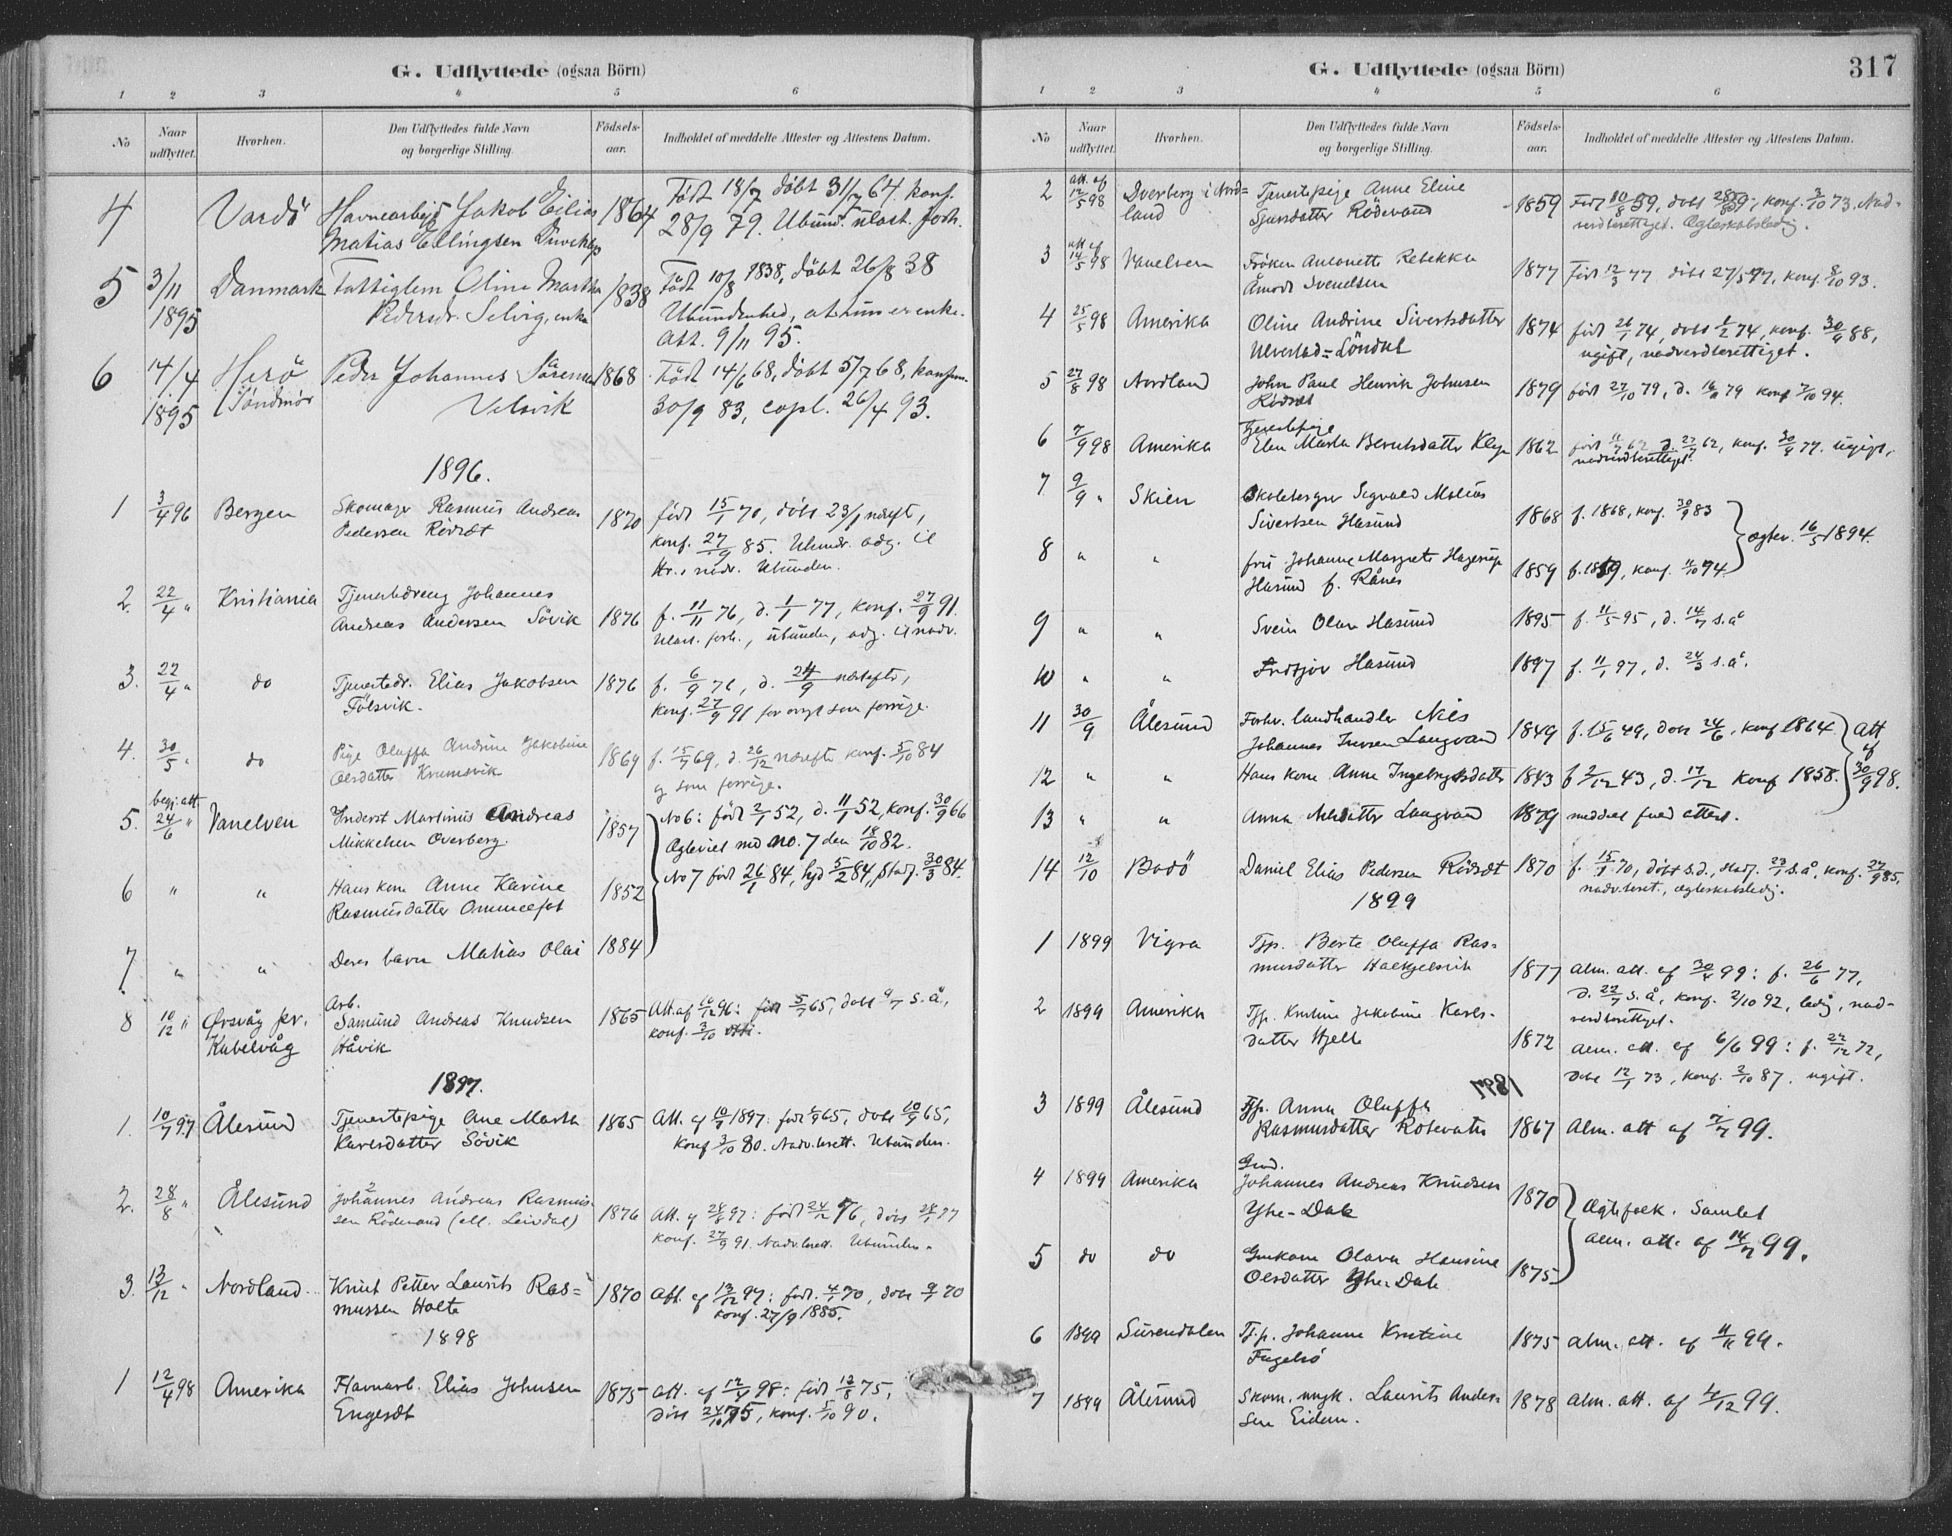 G. Udflyttede (ogsaa Börn)
1 2 3 4 5 6
No
Naar udflyttet.
Hvorhen.
Den Udflyttedes fulde Navn og borgerlige Stilling.
Födsels-aar.
Indholdet af meddelte Attester og Attestens Datum.
4 Vardö Havnearbejd. Jakob Elias 1864 Födt 18/7 döbt 31/7 64. konf.
Matias Ellingsen 28/9 79. Ubund. forh.
5 3/11 Danmark Fattiglem Oline Martha 1838 Födt 10/8 1838, döbt 26/8 38
1895 Pedersdr. Selvig, enke Ubundenhed, at hun er enke.
Att. 9/11 95.
6 14/4 Herö Peder Johannes Sörensen 1868 Födt 14/6 68, döbt 5/7 68, konfirm.
1895 Söndmör Velsvik 30/9 83, copl. 26/4 93.
1896.
1 3/4 96 Bergen Skomager Rasmus Andreas 1870 födt 15/1 70, döbt 23/1 næstf,
Pedersen Rödsæt konf. 27/9 85. Ubundr. adg. til
nadv. Ubunden.
2. 22/4 " Kristiania Tjenestedreng Johannes
Andreas Andersen Sövik 1876 f. 11/11 76, d. 1/1 77, konf. 27/9 91.
Ulast. forh., ubunden, adg. til nadv.
3. 22/4 " do Tjenestedr. Elias Jakobsen 1876 f. 6/9 76, d. 24/9 næstefter,
Tölsvik. konf. 27/9 91 for övrigt som forrige.
4. 30/5 " do Pige Oluffa Andrine Jakobine 1869 f. 15/9 69, d. 26/12 næstefter konf. 5/10 84
Olsdatter Krumsvik og som forrige.
begj. att.
5. 24/6 " Vanelven Inderst Martinus Andreas 1857 No 6: födt 2/1 52, d. 11/1 52, konf. 30/9 66
Mikkelsen Overberg. Ægteviet med no. 7 den 18/10 82.
6 " " Hans kone Anne Karine 1852 No 7 födt 26/1 84, hjd 5/2 84, stadf. 30/3 84.
Rasmusdatter Ommeelfot
7 " " Deres barn Matias Olai 1884
8 10/12 " Örsvåg pr. Arb.
Kabelvåg Samund Andreas Knudsen 1865 Att. af 10/12 96: född 5/7 65, döbt 9/7 s. å,
Håvik konf. 3/10
1897.
1. 10/7 97 Ålesund Tjenestepige Ane Marta 1865 Att. af 10/7 1897: födt 1/9 65, döbt 10/9 65,
Karlsdatter Sövik konf 3/10 80. Nadv.berett. Ubunden.
2. 28/8 " Ålesund Johannes Andreas Rasmus-
sen Rödevand (ell. Leirdal) 1876 Att. af 28/8 97: födt 24/12 76, döbt 28/1 77
konf. 27/9 91. Nadv.berett. Ubunden.
3. 13/12 " Nordland Knut Petter Laurits Ras- 1870 Att. af 13/12 97: født. 4/1 70, döbt 9/1 70
mussen Holte konf. 27/9 1885.
1898
1 12/4 98 Amerika Havnarb. Elias Johnsen 1875 Att. af 12/4 98: födt 12/8 75,
Engesæt döbt 24/10 75, konf. 5/10 90.
G. Udflyttede (ogsaa Börn) 317
1 2 3 4 5 6
No
Naar udflyttet.
Hvorhen.
Den Udflyttedes fulde Navn og borgerlige Stilling.
Födsels-aar.
Indholdet af meddelte Attester og Attestens Datum.
2 att. af 12/5 98 Dverberg i Nord- Tjenestepige Anne Eline
land Sjursdatter Rödevand 1859 Född 10/8 59, döbt 28/8 59, konf. 3/10 73. Nad-
verdberettiget. Ægteskabsledig.
3 att af 14/5 98 Vanelven Fröken Antonette Rebekka
Amods Svendsen 1877 Född 12/3 77 döbt 27/5 77, konf. 8/10 93.
4 25/5 98 Amerika Oline Andrine Sivertsdatter 1874 födt 26/1 74, döbt 1/2 74, konf. 30/9 88,
Ulvestad=Löndal ugift, nadverdberettiget.
5 27/8 98 Nordland John Paul Henrik Johnsen 1879 född 27/10 79, d. 16/11 79 konf 7/10 94.
Rödsæt
6 7/9 98 Amerika Tjenestepige
Elen Marta Berntsdatter Klep 1862 född 11/7 62 d. 27/7 62, konf. 30/9 77. ugift,
nadverdberettiget.
7 9/9 " Skien Skolebestyrer Sigvald Matias
Sivertsen Hasund 1868 f. 1868, konf. 30/9 83
ægtev. 16/5 1894.
8 " " fru Johanne Margrete Hagerup
Hasund f. Rånes 1859 f. 1859, konf. 11/10 74
9 " " Svein Olav Hasund 1895 f. 11/5 95, d. 14/7 s.å
10 " " Fridtjov Hasund 1897 f. 11/1 97, d. 24/3 s.å.
11 30/9 Ålesund Forhv. landhandler Nils
Johannes Iversen Langvand 1849 f. 15/6 49, döbt 24/6, konf 1864 Att af 30/9 98.
12 " " Hans kone Anne Ingebrigtsdatter 1843 f 2/12 43, d. 17/12 konf 1858.
13 " " Anna Nilsdatter Langvand 1879 meddelt fuld attest.
14 12/10 Bodö Daniel Elias Pedersen Rödsæt 1870 f. 15/1 70, döbt s.d., stadf. 23/1 s.å, konf. 27/9 85,
nadv.beret., ægteskabsledig.
1899
1 1899 Vigra Tjp. Berte Oluffa Ras-
musdatter Hackjelsvik 1877 Alm. att. af 30/4 99: f. 26/6 77,
d. 22/7 s. å, konf. 2/10 92, ledig, nad-
verdberettiget.
2 1899 Amerika Tjp. Kristine Jakobine Karls-
datter Hjelle 1872 Alm. att. af 6/6 99: f. 22/12 72,
döbt 12/1 73, konf. 2/10 87. ugift.
1897
3 1899 Ålesund Tjp. Anna Oluffa
Rasmusdatter Rotevatn 1867 Alm. att af 7/7 99.
4 1899 Amerika Grd.
Johannes Andreas Knudsen 1870 Ægtefolk. Samlet
Ytre-Dale alm. att. af 14/7 99.
5 do do Grdkone Olava Hansine
Olsdatter Ytre-Dale 1875
6 1899 Surendalen Tj.p. Johanne Kristine 1875 Alm. att. af 11/11 99.
Fugelsö
7 1899 Ålesund Skom. ungk. Laurits Anders- 1878 Alm. att. af 4/12 99.
sen Eidem.